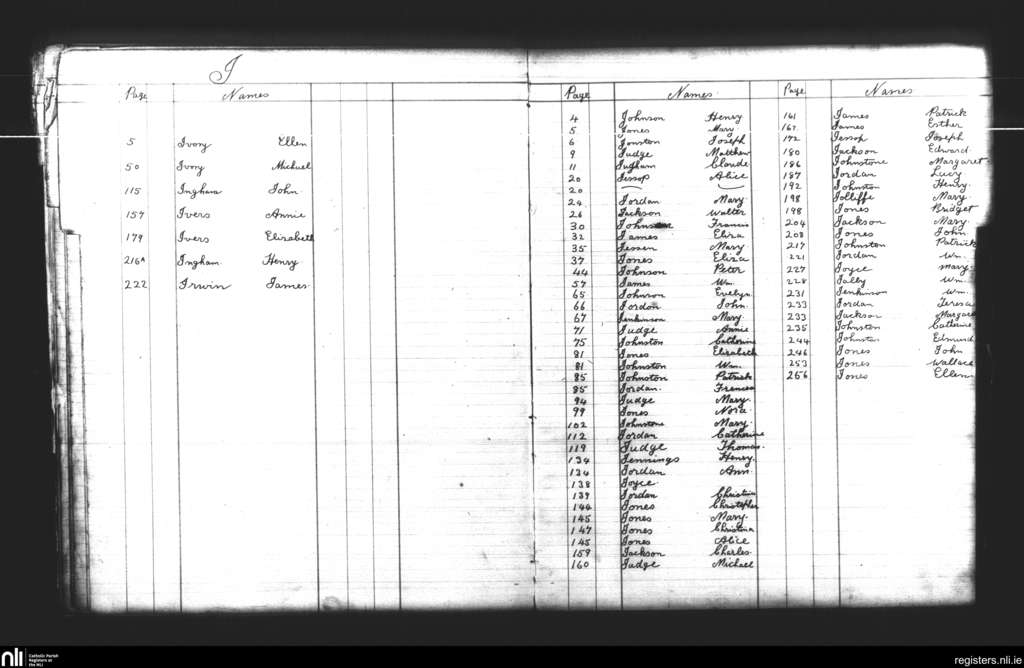 I
Page Names
5 Ivory Ellen
50 Ivory Michael
115 Ingham John
157 Ivers Annie
179 Ivers Elizabeth
216A Ingham Henry
222 Irwin James
Page Names
4 Johnson Henry
5 Jones Mary
6 Jonston Joseph
9 Judge Matthew
11 Jugham Claude
20 Jessop Alice
20
24 Jordan Mary
26 Jackson Walter
30 Johnston Francis
32 James Eliza
35 Jessen Mary
37 Jones Eliza
44 Johnson Peter
57 James Wm.
65 Johnson Evelyn
66 Jordon John
67 Jenkinson Mary
71 Judge Annie
75 Johnston Catherine
81 Jones Elizabeth
81 Johnston Wm.
85 Johnston Patrick
85 Jordan. Frances
94 Judge Mary
99 Jones Nora
102 Johnstone Mary
112 Jordan Catherine
119 Judge Thomas
134 Jennings Henry
134 Jordan Ann
138 Joyce
139 Jordan Christina
144 Jones Christopher
145 Jones Mary
147 Jones Christina
145 Jones Alice
159 Jackson Charles
160 Judge Michael
Page Names
161 James Patrick
167 James Esther
172 Jessop Joseph
180 Jackson Edward
186 Johnstone Margaret
187 Jordan Lucy
192 Johnston Henry
198 Jolliffe Mary
198 Jones Bridget
204 Jackson Mary
208 Jones John
217 Johnston Patrick
221 Jordan Wm.
227 Joyce Mary
228 Jally Wm.
231 Jenkinson Wm.
233 Jordan Teresa
233 Jackson Margaret
235 Johnston Catherine
244 Johnston Edmund
246 Jones John
253 Jones Wallace
256 Jones Ellen
nli Catholic Parish
Registers at
the NLI
registers.nli.ie